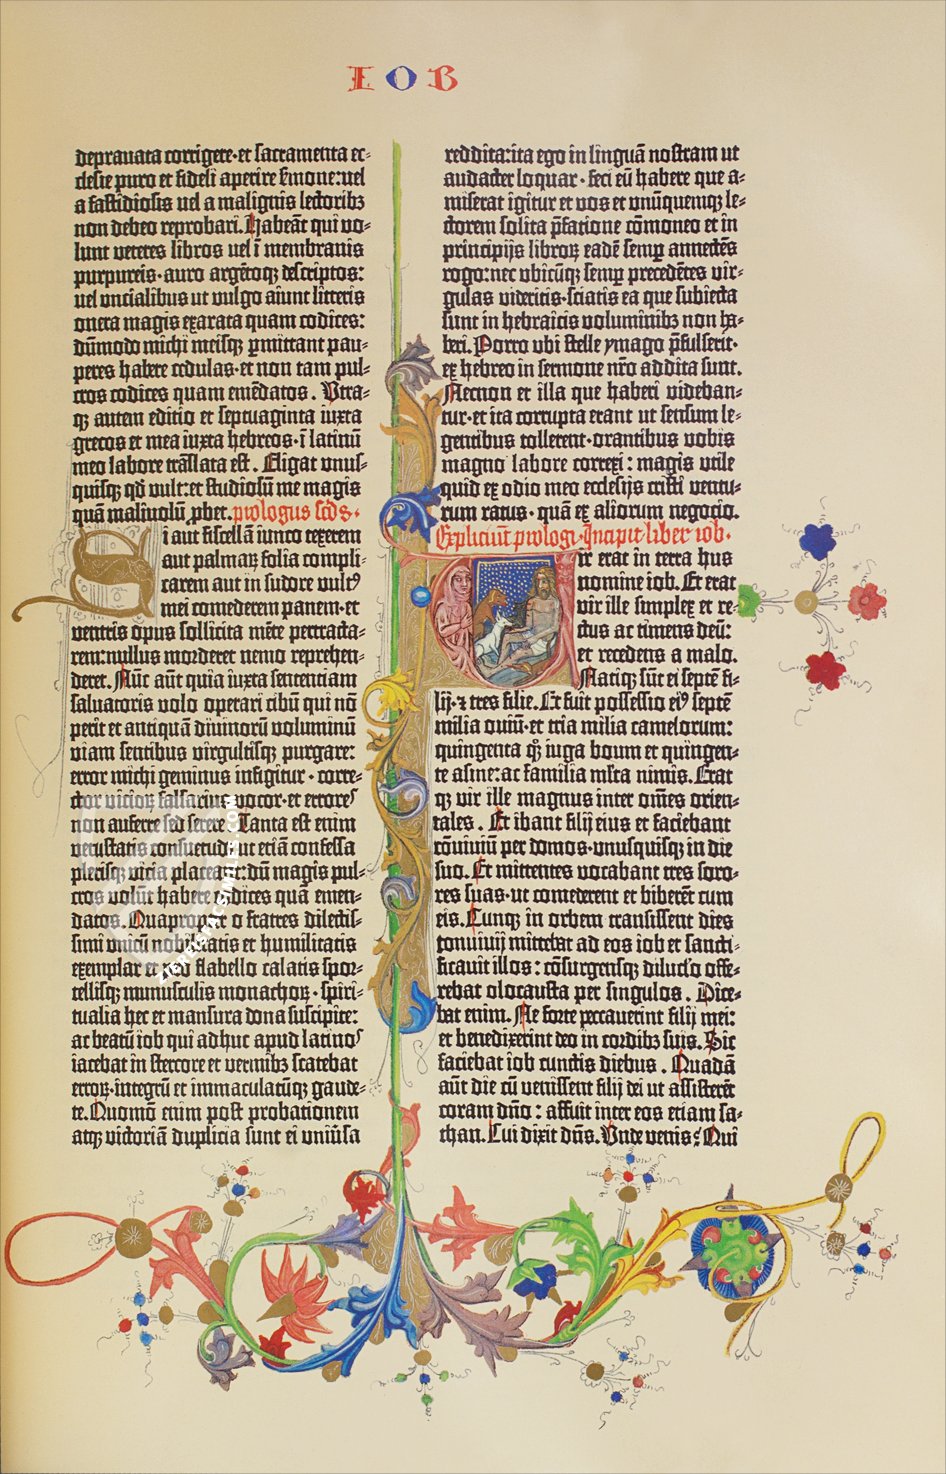 IOB
deprauata corrigere·et sacramenta ec-
clesie puro et fideli aperire sermone:uel
a fastidiosis uel a malignis lectoribz
non debeo reprobari. Habeāt qui vo-
lunt veteres libros uel ī membranis
purpureis·auro argētoqz descriptos:
uel vncialibus ut vulgo aiunt litteris
onera magis exarata quam codices:
dūmodo michi meisqz pmittant pau-
peres habere cedulas·et non tam pul-
cros codices quam emēdatos. Vtra-
qz autem editio et septuaginta iuxta
grecos et mea iuxta hebreos·ī latinū
meo labore trāslata est. Eligat vnus-
quisqz qd vult:et studiosū me magis
quā maliuolū pbet. prologus scds·
Si aut fiscellā iunco texerem
aut palmaꝝ folia compli-
carem aut in sudore vultꝰ
mei comederem panem·et
ventris opus sollicita mēte pertracta-
rem:nullus morderet nemo reprehen-
deret. Nūc aūt quia iuxta sententiam
saluatoris volo operari cibū qui nō
perit et antiquā diuinorū voluminū
viam sentibus virgultisqz purgare:
error michi geminus infigitur·corre-
ctor vicioꝝ falsarius vocor·et errores
non auferre sed serere. Tanta est enim
vetustatis consuetudo·ut etiā confessa
plerisqz vicia placeant:dū magis pul-
cros volūt habere codices quā emen-
datos. Quapropter o fratres dilectis-
simi vnicū nobilitatis et humilitatis
exemplar et pro flabello calatis spor-
tellisqz munusculis monachoꝝ·spiri-
tualia hec et mansura dona suscipite:
ac beatū iob qui adhuc apud latinos
iacebat in stercore et vermibz scatebat
erroꝝ·integrū et immaculatūqz gaude-
te. Quomō enim post probationem
atqz victoriā duplicia sunt ei vniūsa
reddita:ita ego in linguā nostram ut
audacter loquar·feci eū habere que a-
miserat igitur et vos et vnūquemqz le-
ctorem solita pfatione cōmoneo et in
principijs libroꝝ eadē semp annectēs
rogo:nec vbicūqz semp precedētes vir-
gulas videritis·sciatis ea que subiecta
sunt in hebraicis voluminibz non ha-
beri. Porro vbi stelle ymago pfulserit·
ex hebreo in sermone nro addita sunt.
Necnon et illa que haberi videban-
tur·et ita corrupta erant ut sensum le-
gentibus tollerent·orantibus vobis
magno labore correxi: magis vtile
quid ex odio meo ecclesijs cristi ventu-
rum ratus·quā ex aliorum negocio.
Expliciūt prologi·Incipit liber iob·
Vir erat in terra hus
nomine iob. Et erat
vir ille simplex et re-
ctus ac timens deū:
et recedens a malo.
Natiqz sūt ei septē fi-
lij·⁊ tres filie. Et fuit possessio eiꝰ septē
milia ouiū·et tria milia camelorum:
quingenta qz iuga boum et quingen-
te asine:ac familia mlta nimis. Erat
qz vir ille magnus inter omēs orien-
tales. Et ibant filij eius et faciebant
cōuiuiū per domos·vnusquisqz in die
suo. Et mittentes vocabant tres soro-
res suas·ut comederent et biberēt cum
eis. Cunqz in orbem transissent dies
conuiuij mittebat ad eos iob et sancti-
ficauit illos: cōsurgensqz diluculo offe-
rebat olocausta per singulos. Dice-
bat enim. Ne forte peccauerint filij mei:
et benedixerint deo in cordibz suis. Sic
faciebat iob cunctis diebus. Quadā
aūt die cū venissent filij dei ut assisterēt
coram dno: affuit inter eos etiam sa-
than. Cui dixit dns. Vnde venis? Qui